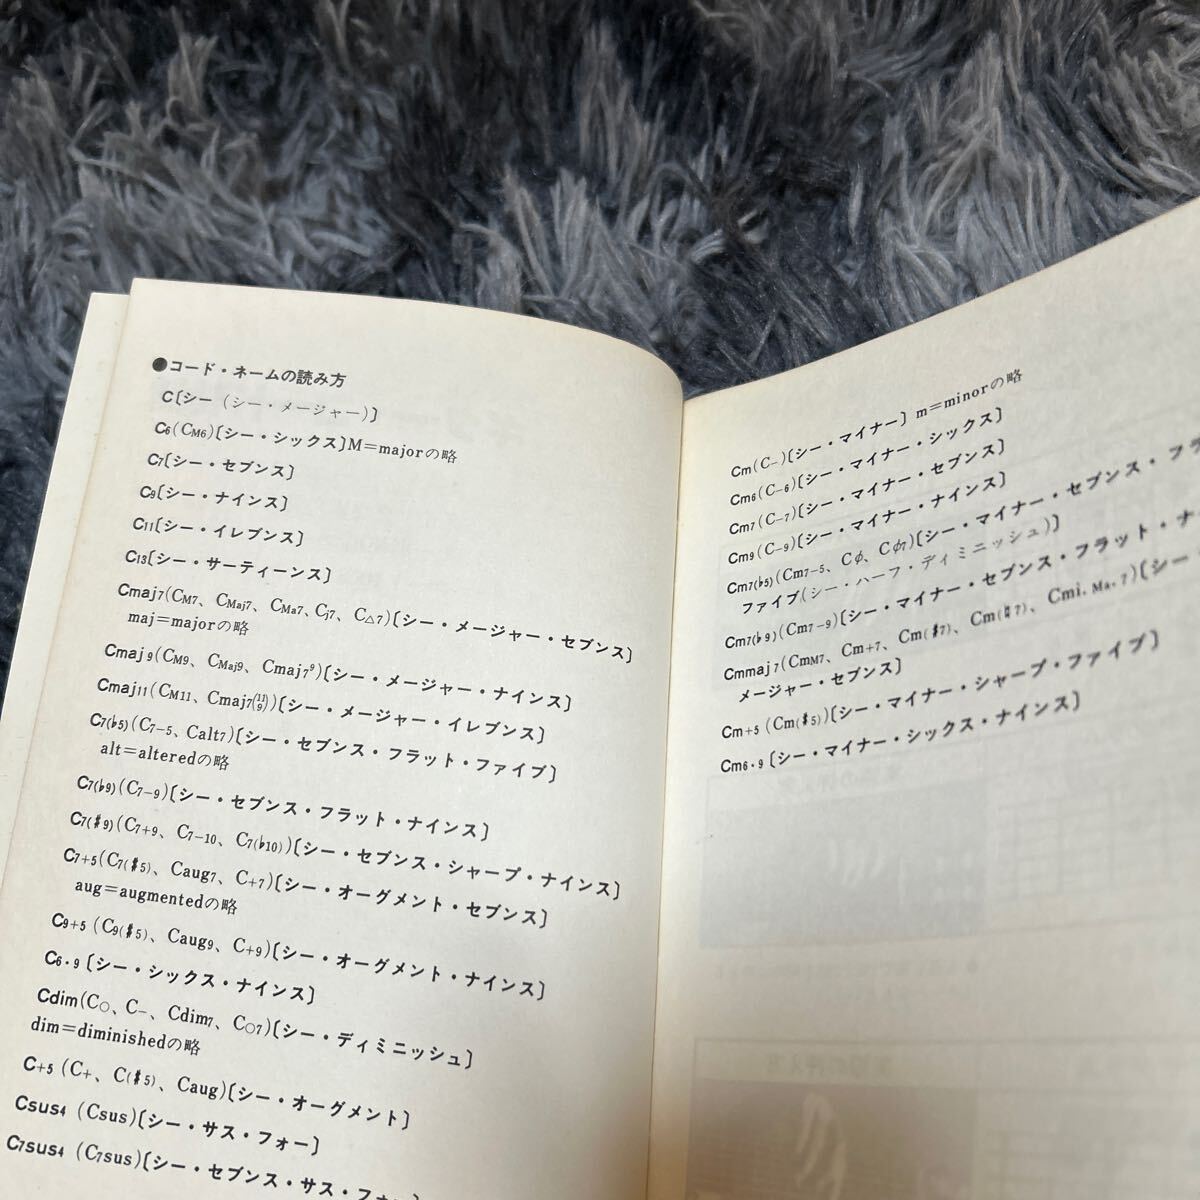 ●コード・ネームの読み方
C〔シー（シー・メージャー）〕
C6(CM6)〔シー・シックス〕M＝majorの略
C7〔シー・セブンス〕
C9〔シー・ナインス〕
C11〔シー・イレブンス〕
C13〔シー・サーティーンス〕
Cmaj7(CM7、CMaj7、CMa7、Cj7、C△7)〔シー・メージャー・セブンス〕
maj＝majorの略
Cmaj9(CM9、CMaj9、Cmaj7⁹)〔シー・メージャー・ナインス〕
Cmaj11(CM11、Cmaj7(11 9))〔シー・メージャー・イレブンス〕
C7(♭5)(C7-5、Calt7)〔シー・セブンス・フラット・ファイブ〕
alt＝alteredの略
C7(♭9)(C7-9)〔シー・セブンス・フラット・ナインス〕
C7(♯9)(C7+9、C7-10、C7(♭10))〔シー・セブンス・シャープ・ナインス〕
C7+5(C7(♯5)、Caug7、C+7)〔シー・オーグメント・セブンス〕
aug＝augmentedの略
C9+5 (C9(♯5)、Caug9、C+9)〔シー・オーグメント・ナインス〕
C6・9〔シー・シックス・ナインス〕
Cdim(C○、C-、Cdim7、C○7)〔シー・ディミニッシュ〕
dim＝diminishedの略
C+5 (C+、C(♯5)、Caug)〔シー・オーグメント〕
Csus4 (Csus)〔シー・サス・フォー〕
C7sus4 (C7sus)〔シー・セブンス・サス・フォー〕
Cm(C-)〔シー・マイナー〕m＝minorの略
Cm6(C-6)〔シー・マイナー・シックス〕
Cm7(C-7)〔シー・マイナー・セブンス〕
Cm9(C-9)〔シー・マイナー・ナインス〕
Cm7(♭5)(Cm7-5、Cφ、Cφ7)〔シー・マイナー・セブンス・フラ
ファイブ(シー・ハーフ・ディミニッシュ)〕
Cm7(♭9)(Cm7-9)〔シー・マイナー・セブンス・フラット・ナ
Cmmaj7(CmM7、Cm+7、Cm(♯7)、Cm(♮7)、Cmi.Ma.7)〔シー
メージャー・セブンス〕
Cm+5 (Cm(♯5))〔シー・マイナー・シャープ・ファイブ〕
Cm6・9〔シー・マイナー・シックス・ナインス〕